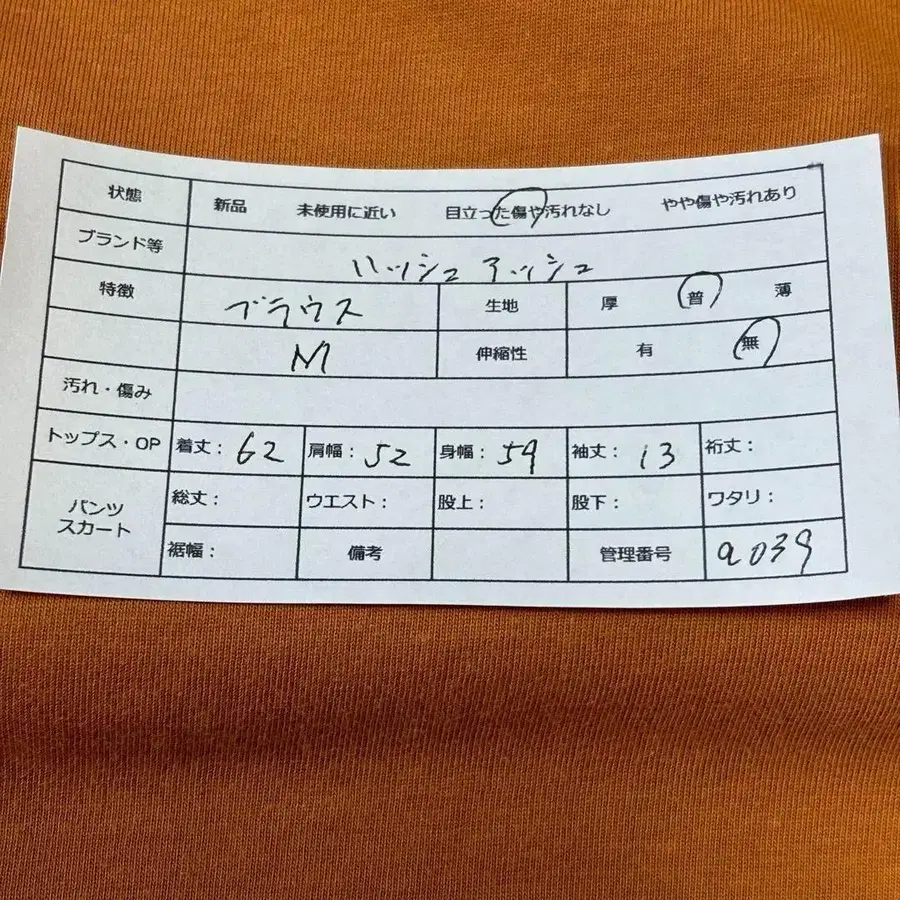 状態 新品 未使用に近い 目立った傷や汚れなし やや傷や汚れあり
ブランド等 ハッシュアッシュ
特徴 ブラウス 生地 厚 普 薄
M 伸縮性 有 無
汚れ・傷み
トップス・OP 着丈：62 肩幅：52 身幅：59 袖丈：13 裄丈：
パンツ
スカート
総丈： ウエスト： 股上： 股下： ワタリ：
裾幅： 備考 管理番号 a039